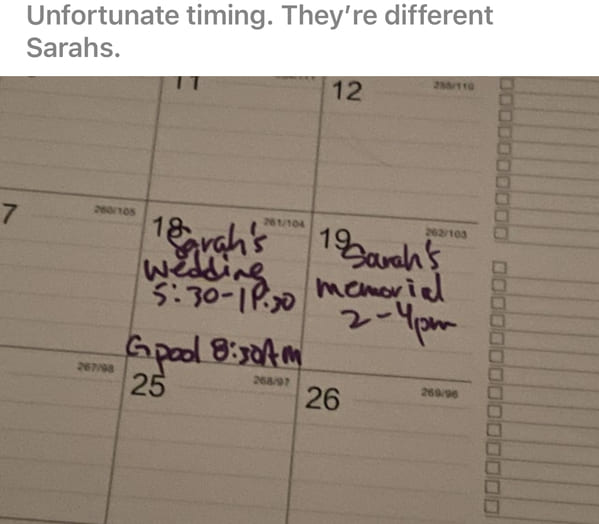 Unfortunate timing. They're different
Sarahs.
11
12
255/110
7
260/105
18
261/104
Sarah's
wedding
5:30-1P.30
Gpool 8:30AM
19
262/103
Sarah's
memorial
2-4pm
267/98
25
268/97
26
269/96